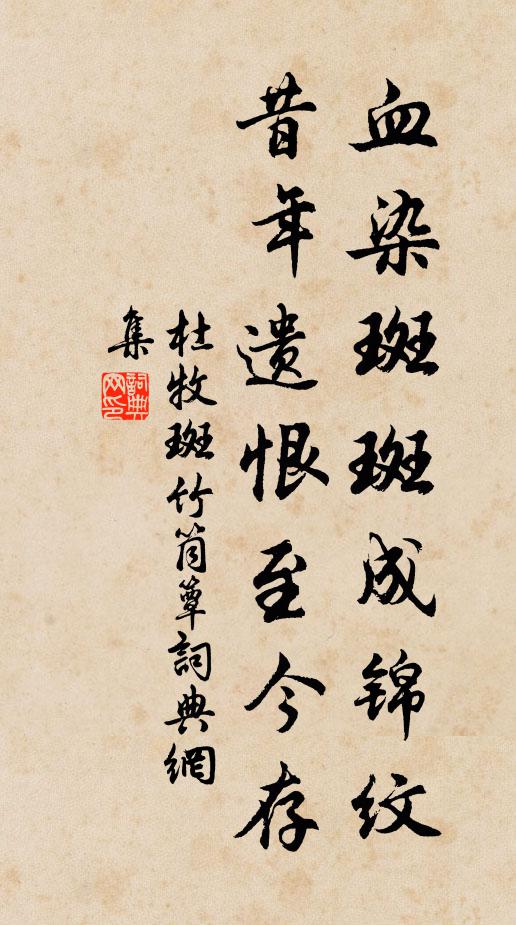 血染斑斑成锦纹
昔年遗恨至今存
杜牧斑竹筒簟詞典網
集
詞典網印